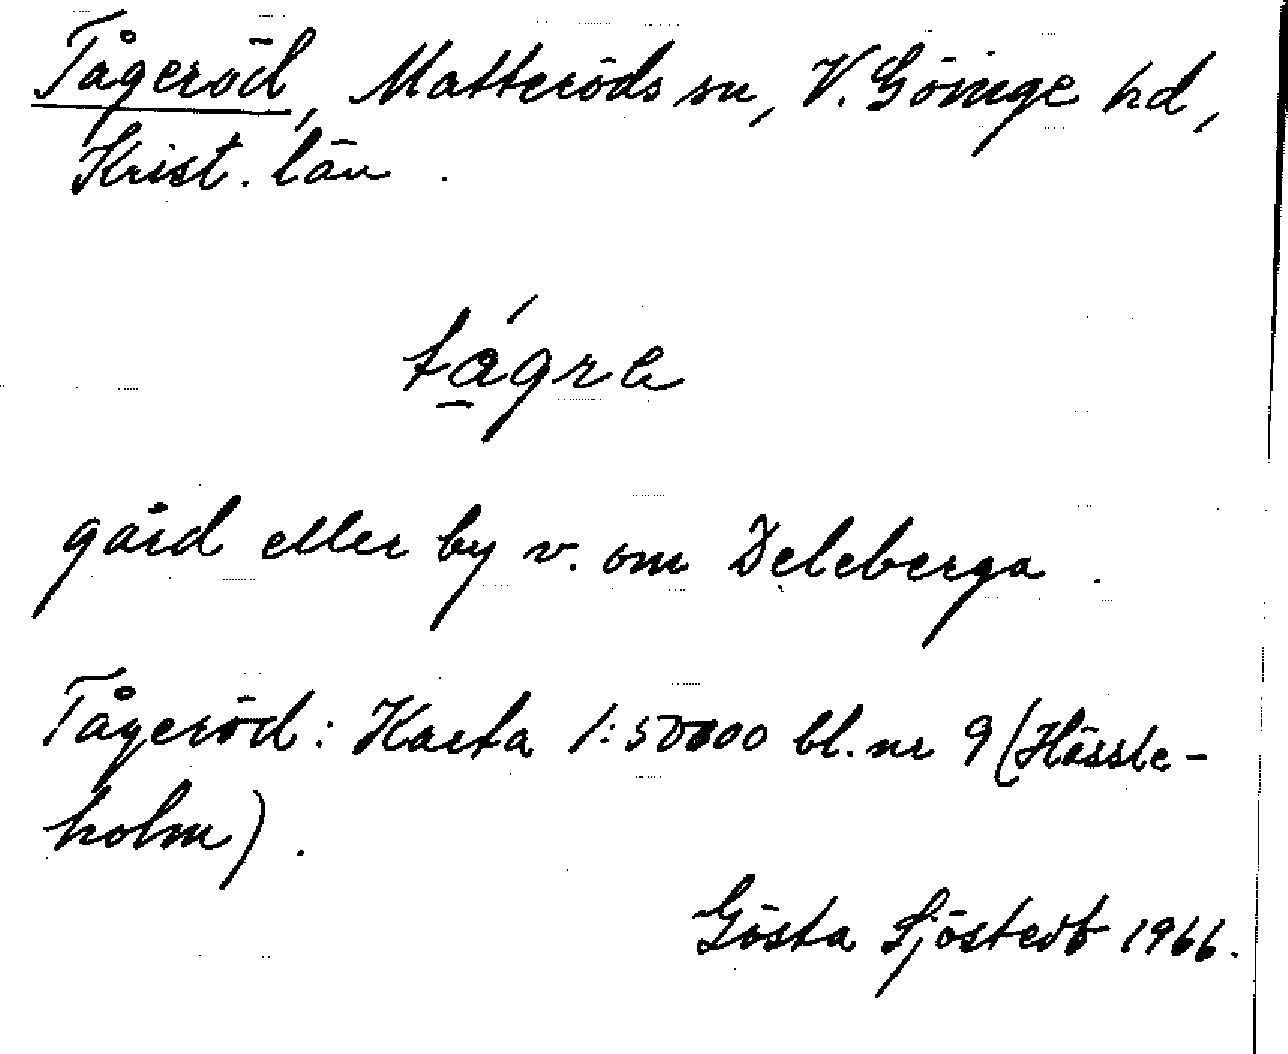 Tågeröd, Matteröds sn, V. Göinge hd,
Krist. län.
tá̱gra
gård eller by v. om Deleberga.
Tågeröd: Karta 1:50000 bl. nr 9 (Hässle-
holm).
Gösta Sjöstedt 1966.